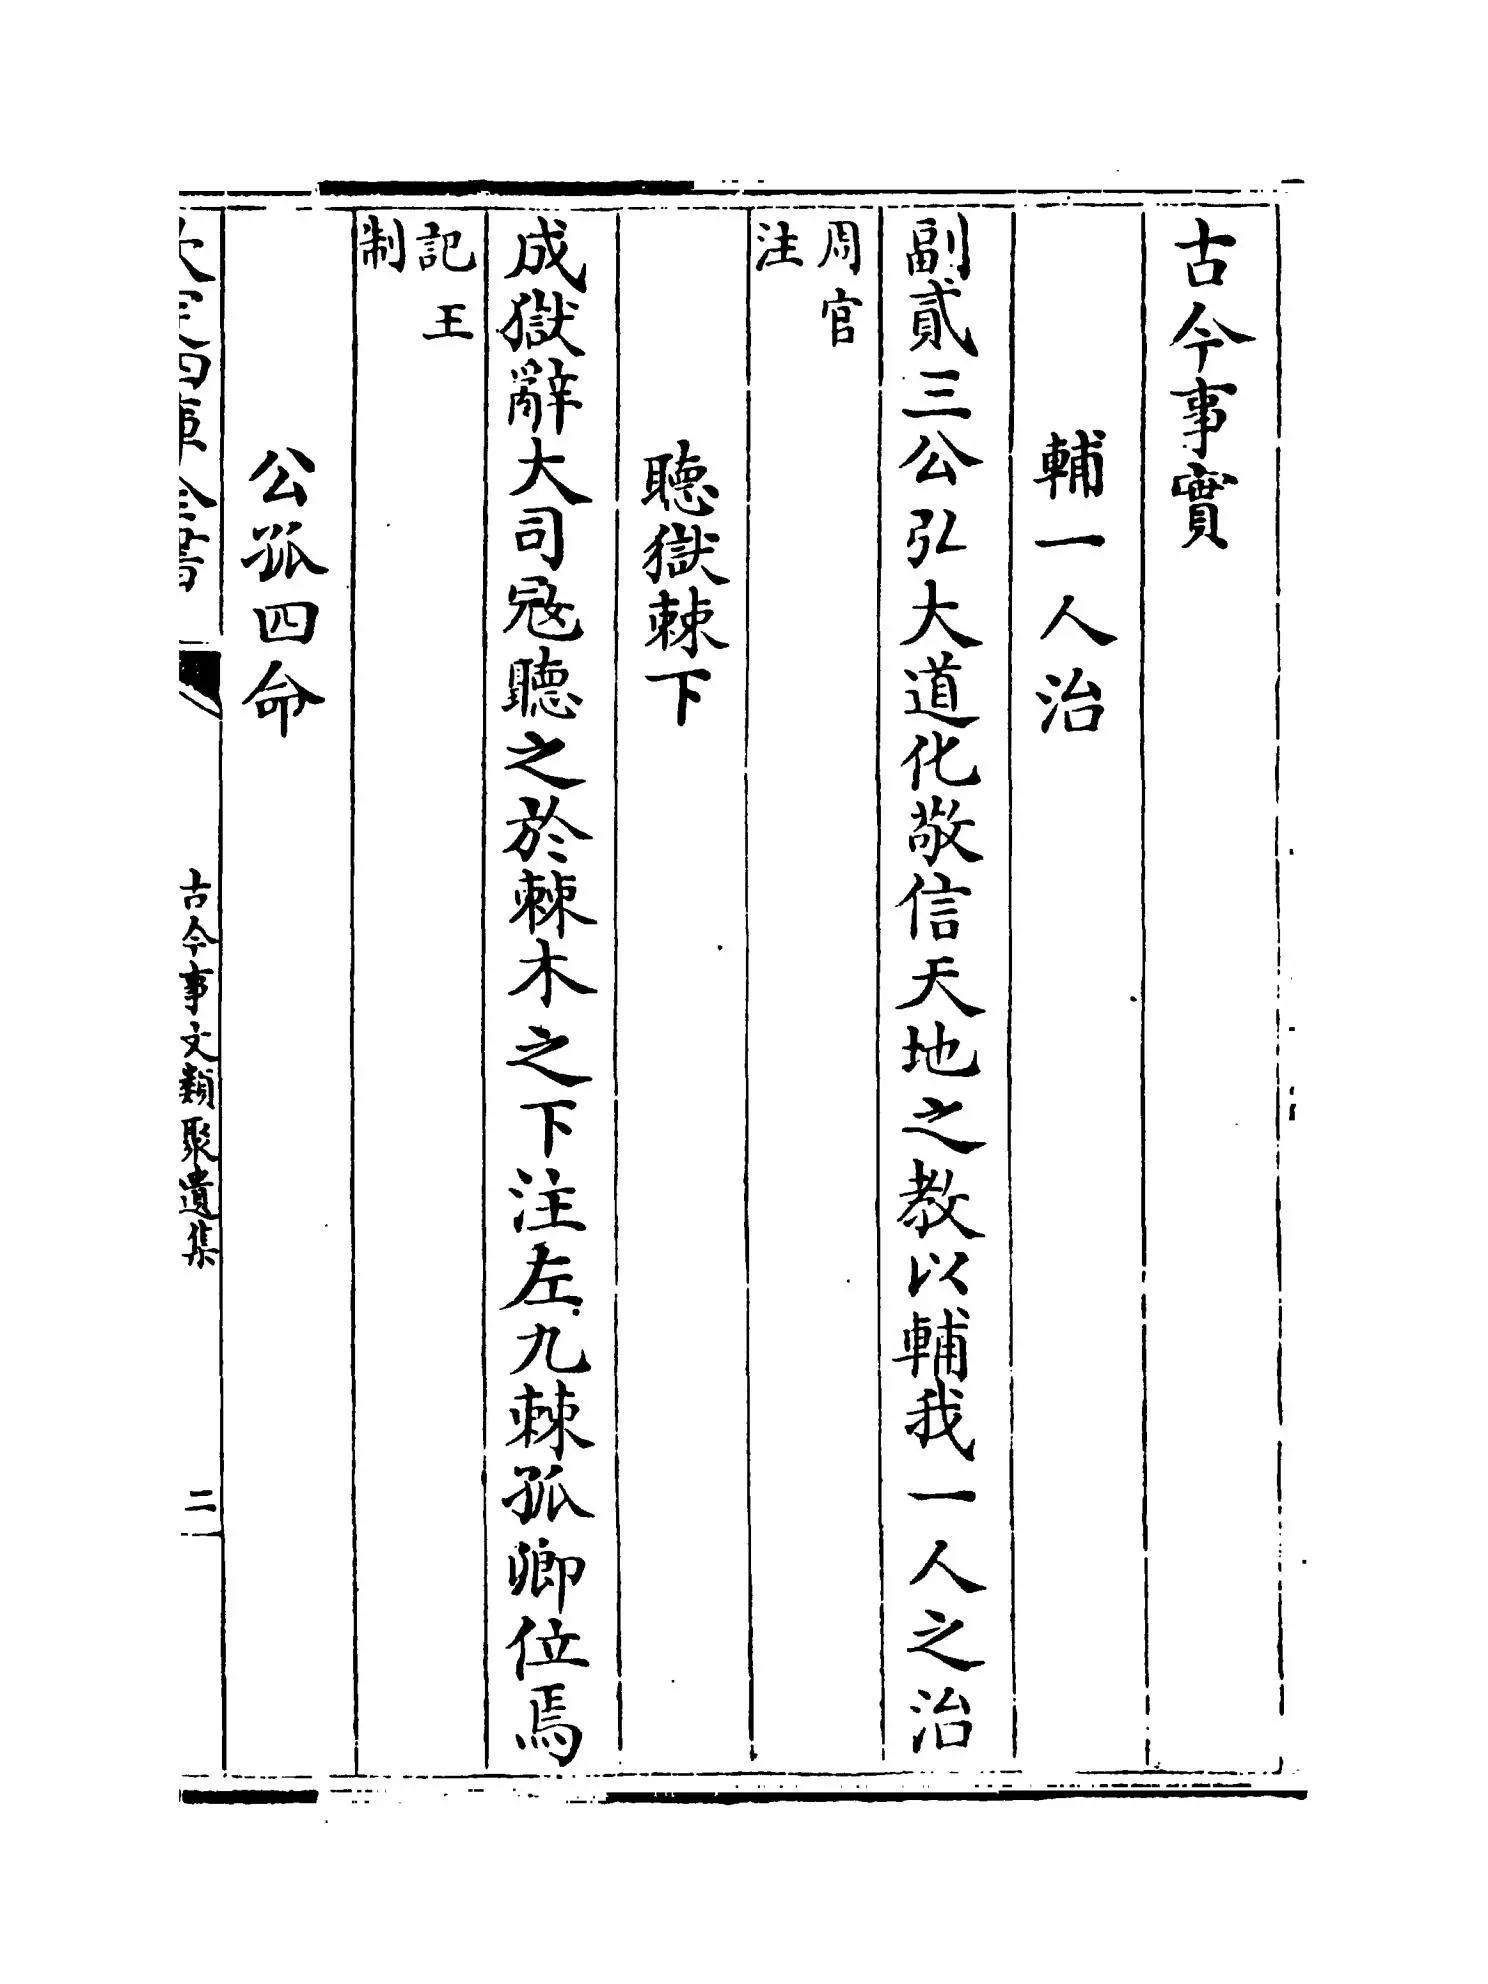 古今事實
輔一人治
副貳三公弘大道化敬信天地之教以輔我一人之治
周官
注
聽獄棘下
成獄辭大司冦聽之於棘木之下注左九棘孤卿位焉
記王
制
公孤四命
欽定四庫全書
古今事文類聚遺集
二